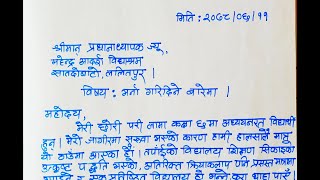 मिति : २०७८/०६/११
श्रीमान् प्रधानाध्यापक ज्यू,
महेन्द्र आदर्श विद्याश्रम
सातदोबाटो, ललितपुर ।
विषय : भर्ना गरिदिने बारेमा ।
महोदय,
मेरी छोरी परी लामा कक्षा ६ मा अध्ययनरत विद्यार्थी
हुन् । मेरो जागीरमा सरुवा भएको कारण हामी हालसालै मात्र
यस ठाउँमा आएका हौं । तपाईंको विद्यालय शिक्षण सिकाइका
उत्कृष्ट पद्धति भएको, अतिरिक्त क्रियाकलाप पनि प्रशस्त मात्रामा
एक प्रतिष्ठित विद्यालय हो भन्ने कुरा थाहा पाएँ